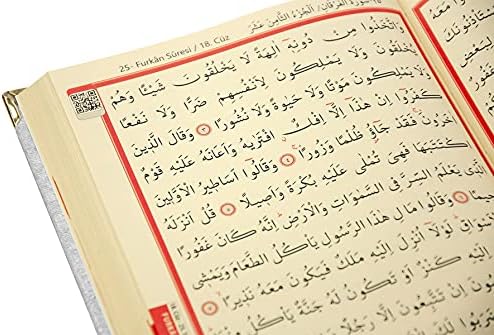 25 - Furkân Sûresi / 18. Cüz
سورة الفرقان / الجزء الثامن عشر
وَاتَّخَذُوا مِنْ دُونِهٖٓ اٰلِهَةً لَا يَخْلُقُونَ شَيْـًٔا وَهُمْ
يُخْلَقُونَ وَلَا يَمْلِكُونَ لِاَنْفُسِهِمْ ضَرًّا وَلَا نَفْعًا
وَلَا يَمْلِكُونَ مَوْتًا وَلَا حَيٰوةً وَلَا نُشُورًا ﴿٣﴾ وَقَالَ الَّذٖينَ
كَفَرُٓوا اِنْ هٰذَٓا اِلَّٓا اِفْكٌ افْتَرٰيهُ وَاَعَانَهُ عَلَيْهِ قَوْمٌ
اٰخَرُونَ فَقَدْ جَٓاؤُ ظُلْمًا وَزُورًا ﴿٤﴾ وَقَالُٓوا اَسَاطٖيرُ الْاَوَّلٖينَ
اكْتَتَبَهَا فَهِيَ تُمْلٰى عَلَيْهِ بُكْرَةً وَاَصٖيلًا ﴿٥﴾ قُلْ اَنْزَلَهُ
الَّذٖي يَعْلَمُ السِّرَّ فِي السَّمٰوَاتِ وَالْاَرْضِ اِنَّهُ كَانَ غَفُورًا
رَحٖيمًا ﴿٦﴾ وَقَالُوا مَالِ هٰذَا الرَّسُولِ يَأْكُلُ الطَّعَامَ وَيَمْشٖي
الْاَسْوَاقِ لَوْلَٓا اُنْزِلَ اِلَيْهِ مَلَكٌ فَيَكُونَ مَعَهُ نَذٖيرًا ﴿٧﴾
اِلَيْهِ كَنْزٌ اَوْ تَكُونُ لَهُ جَنَّةٌ يَأْكُلُ
اِنْ تَتَّبِعُونَ اِلَّا رَجُلًا